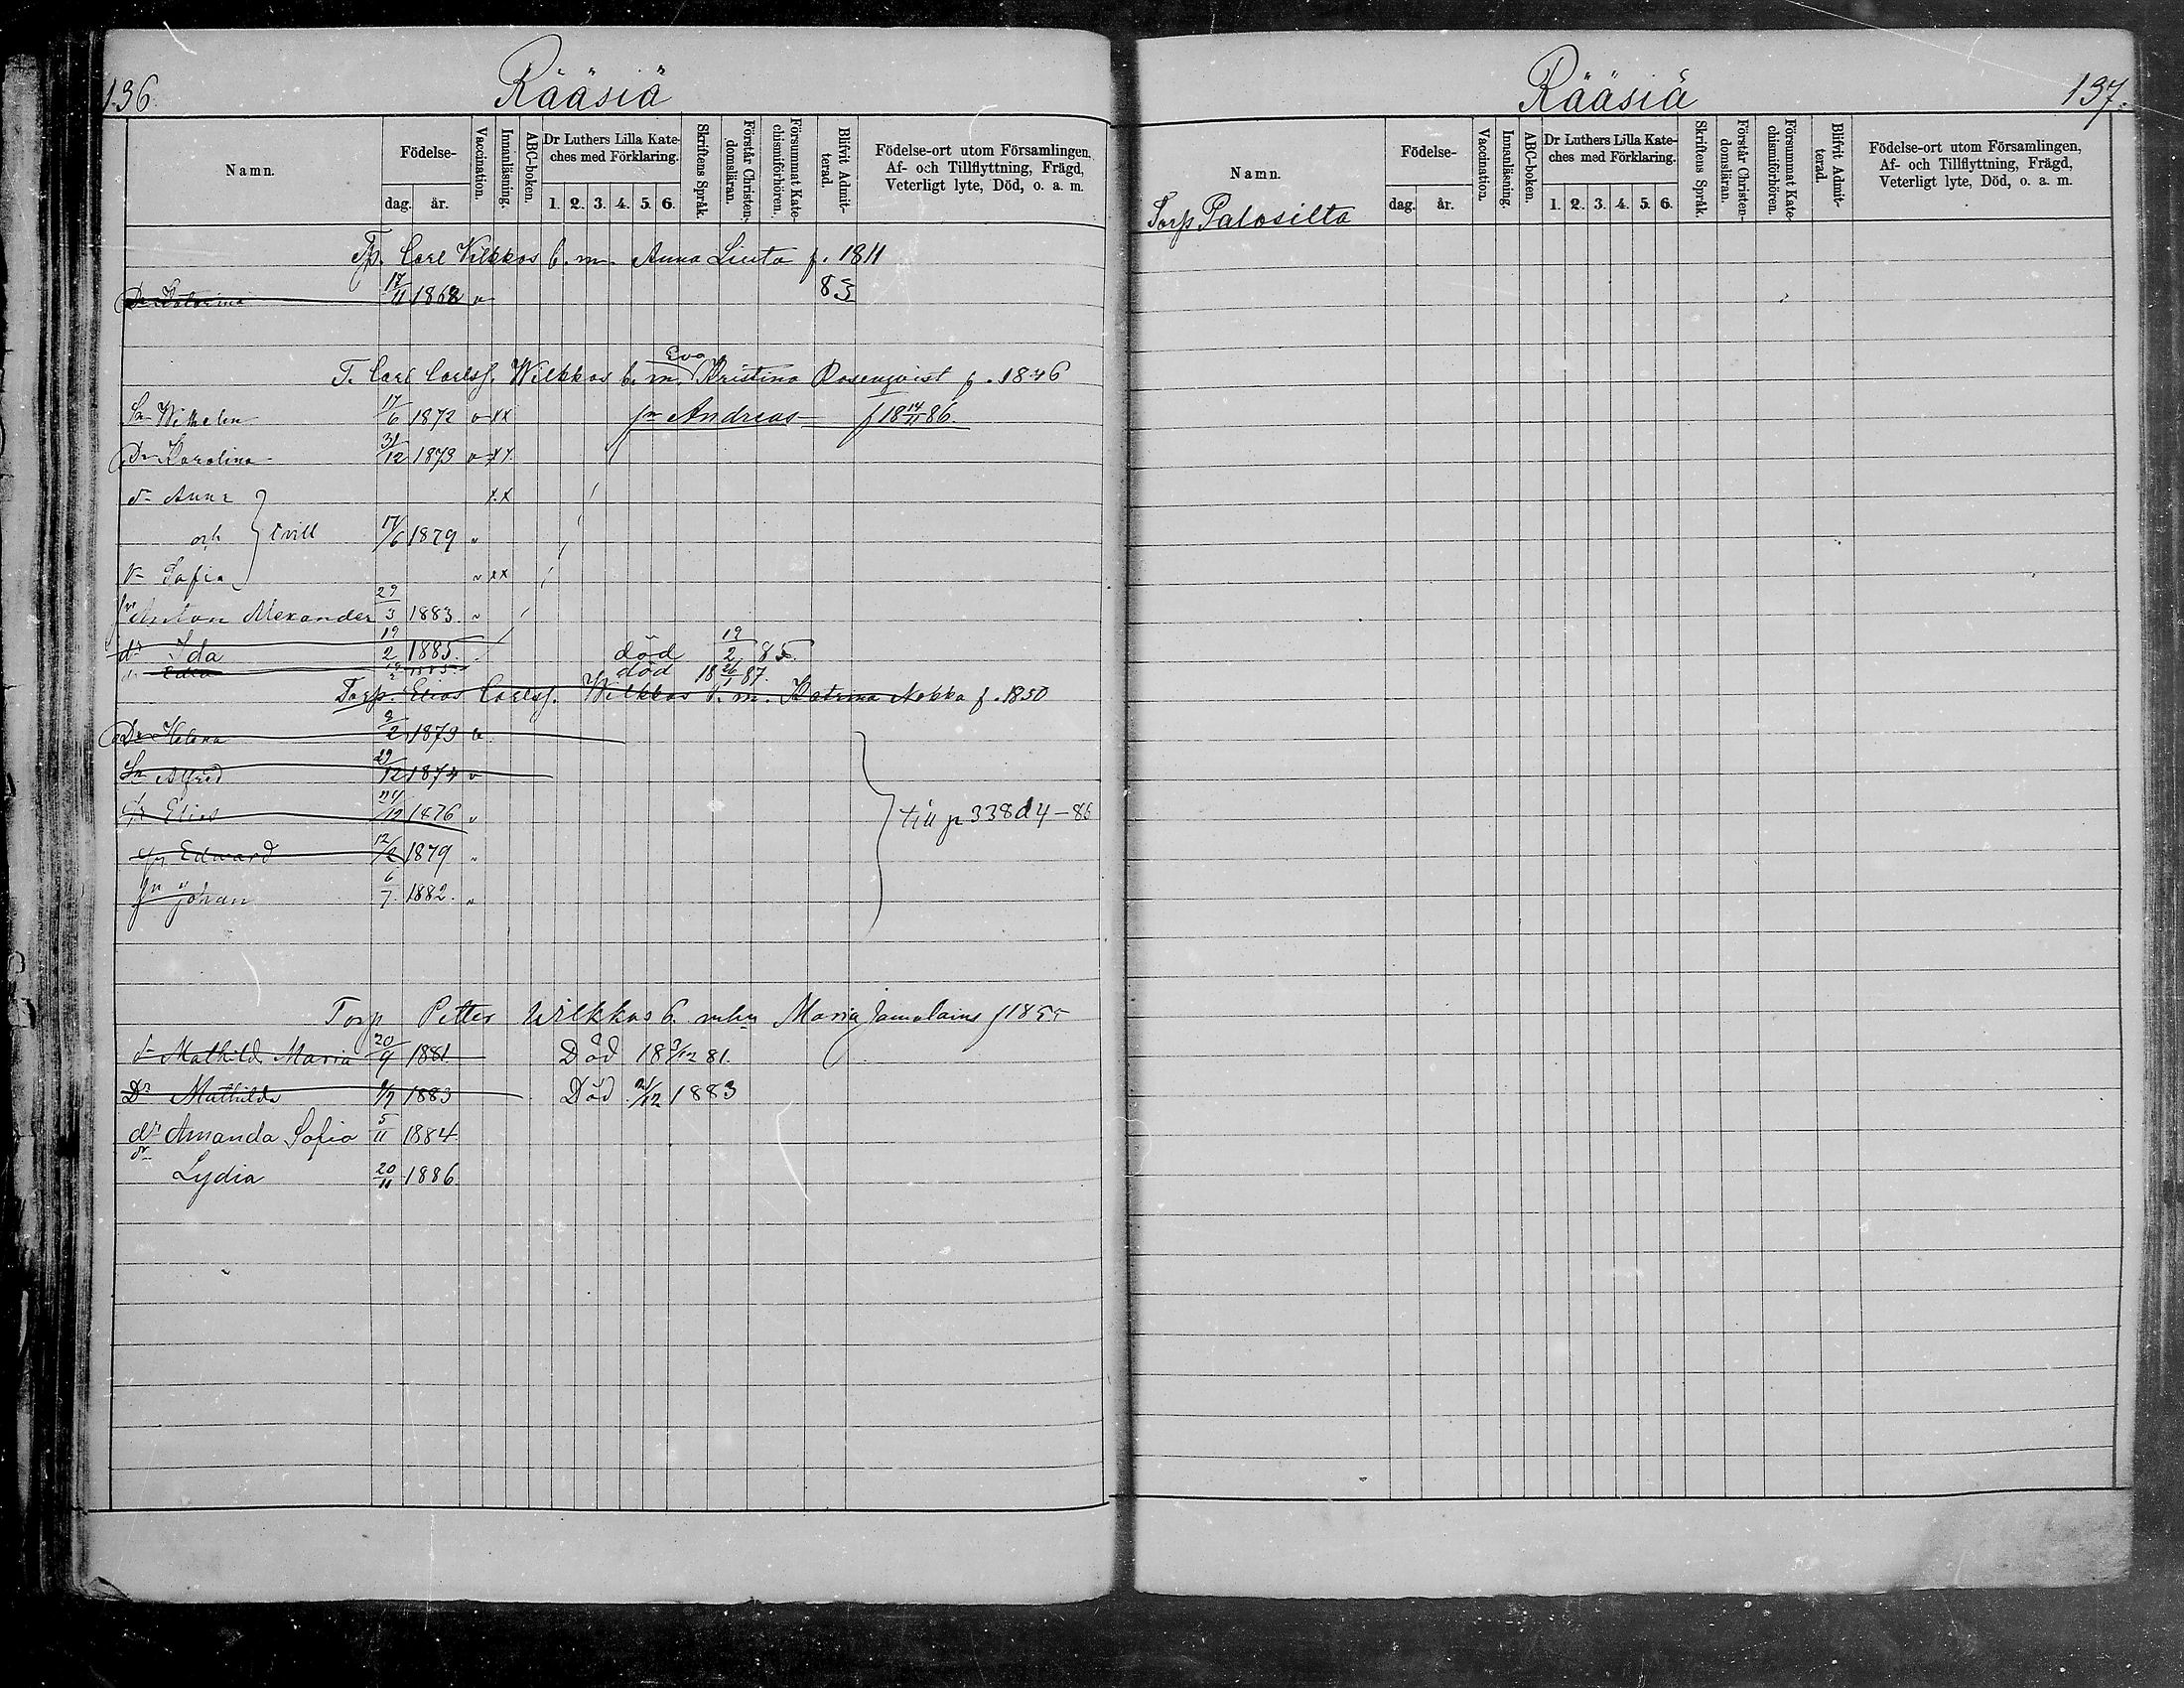 136.
Rääsiä
Namn.
Födelse-
dag.
år.
Vaccination.
Innanläsning.
ABC-boken.
Dr Luthers Lilla Kate-
ches med Förklaring.
1. 2. 3. 4. 5. 6.
Skriftens Språk.
Förstår Christen-
domsläran.
Försummat Kate-
chismiförhören.
Blifvit Admit-
terad.
Födelse-ort utom Församlingen,
Af- och Tillflyttning, Frägd,
Veterligt lyte, Död, o. a. m.
Tp. Carl Vilkkos b. m. Anna Liuta f. 1811
Dr Katarina 17/11 1868 v 83
Eva
T. Carl Carlsf. Wilkkos b. m. Kristina Rosenqvist f. 1846
Sn Wilhelm 17/6 1872 v xx fn Andreas f 18 14/11 86.
Dr Karolina 31/12 1873 v xx
dr Anna x x
och tvill 17/6 1879 v
dr Sofia v xx
fn Anton Alexander 29/3 1883. v
dr Ida 19/2 1885. död 19/2 85.
död 18 26/1 87.
Torp. Elias Carlsf. Wilkkos b. m. Katrina Nokka f. 1850
Dr Helena 9/2 1873 v
Sn Alfred 29/12 1874 v
fn Elias 24/12 1876 v
fn Edward 12/2 1879 v
fn Johan 6/7. 1882. v
till p 338 d 4-86
Torp Petter Wilkkos b. mhu Maria f 1855
dr Mathild Maria 20/9 1881. Död 18 9/12 81.
Dr Mathilda 9/7 1883 Död 21/12 1883
dr Amanda Sofia 5/11 1884
dr
Lydia 20/11 1886
Rääsiä
137.
Namn.
Födelse-
dag.
år.
Vaccination.
Innanläsning.
ABC-boken.
Dr Luthers Lilla Kate-
ches med Förklaring.
1. 2. 3. 4. 5. 6.
Skriftens Språk.
Förstår Christen-
domsläran.
Försummat Kate-
chismiförhören.
Blifvit Admit-
terad.
Födelse-ort utom Församlingen,
Af- och Tillflyttning, Frägd,
Veterligt lyte, Död, o. a. m.
Torp Palosilta